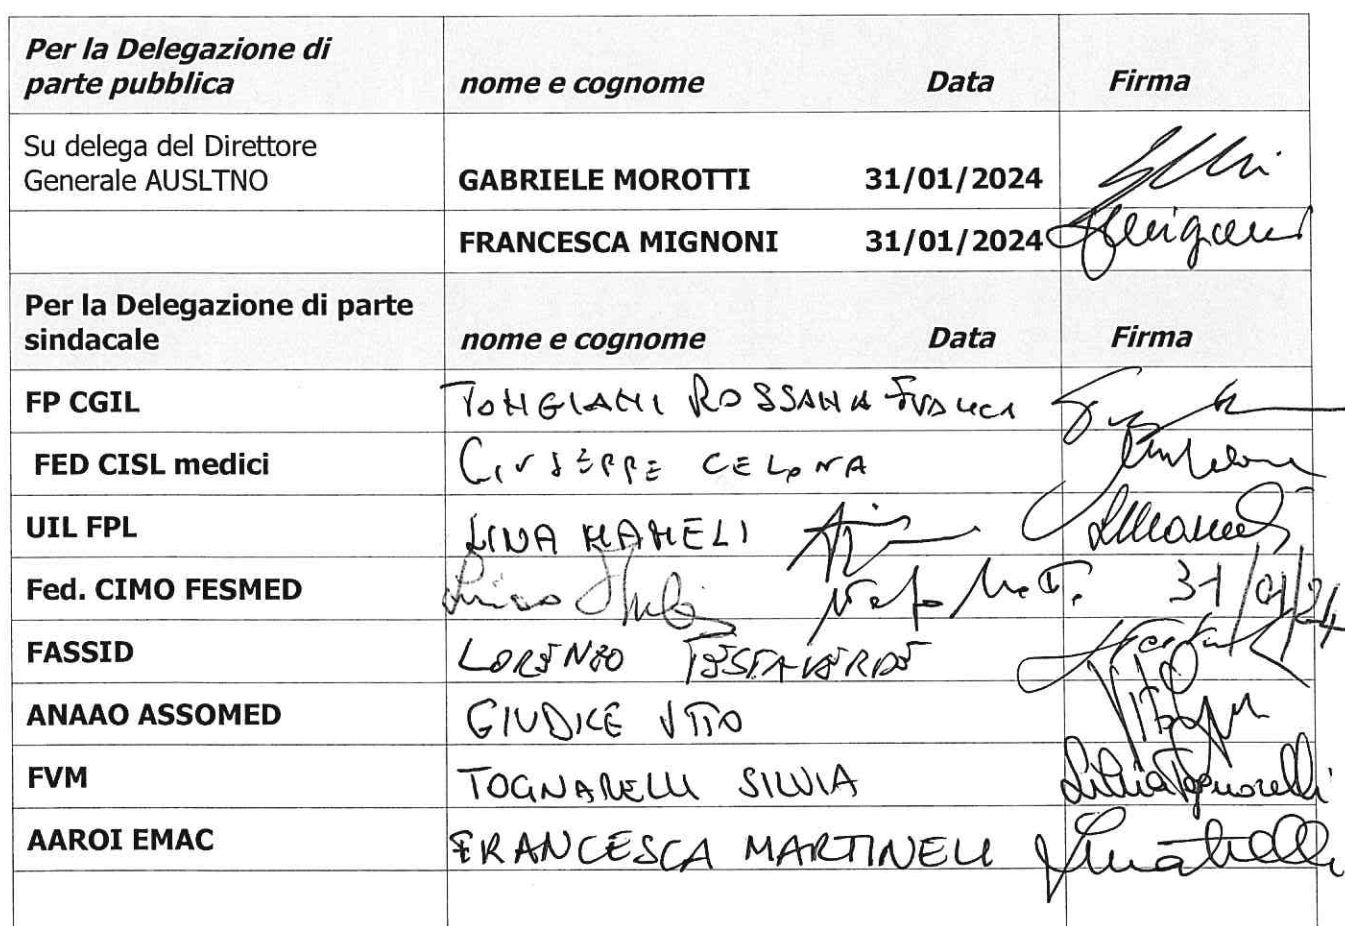 Per la Delegazione di
parte pubblica nome e cognome Data Firma
Su delega del Direttore
Generale AUSLTNO GABRIELE MOROTTI 31/01/2024
FRANCESCA MIGNONI 31/01/2024
Per la Delegazione di parte
sindacale nome e cognome Data Firma
FP CGIL TONGIANI ROSSANA
FED CISL medici GIUSEPPE CELONA
UIL FPL LINA MAMELI
Fed. CIMO FESMED 31/01/24
FASSID LORENZO TESTAVERDE
ANAAO ASSOMED GIUDICE VITO
FVM TOGNARELLI SILVIA Silvia Tognarelli
AAROI EMAC FRANCESCA MARTINELLI